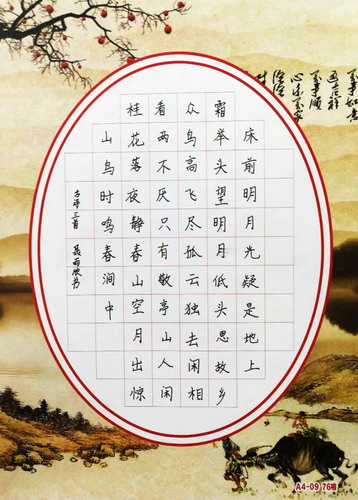 万事如意
床前明月光疑是地上
霜举头望明月低头思故乡
众鸟高飞尽孤云独去闲相
看两不厌只有敬亭山人闲
桂花落夜静春山空月出惊
山鸟时鸣春涧中
古诗三首
A4-09 76格